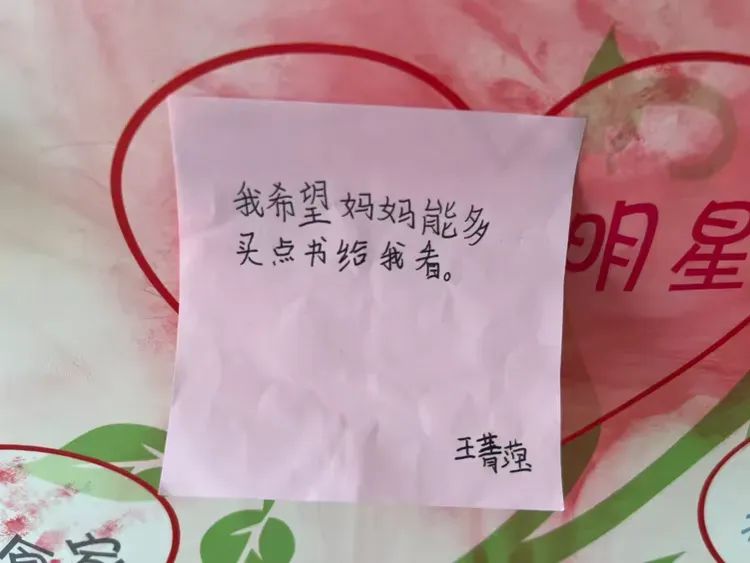 我希望妈妈能多
买点书给我看。
王菁
明星